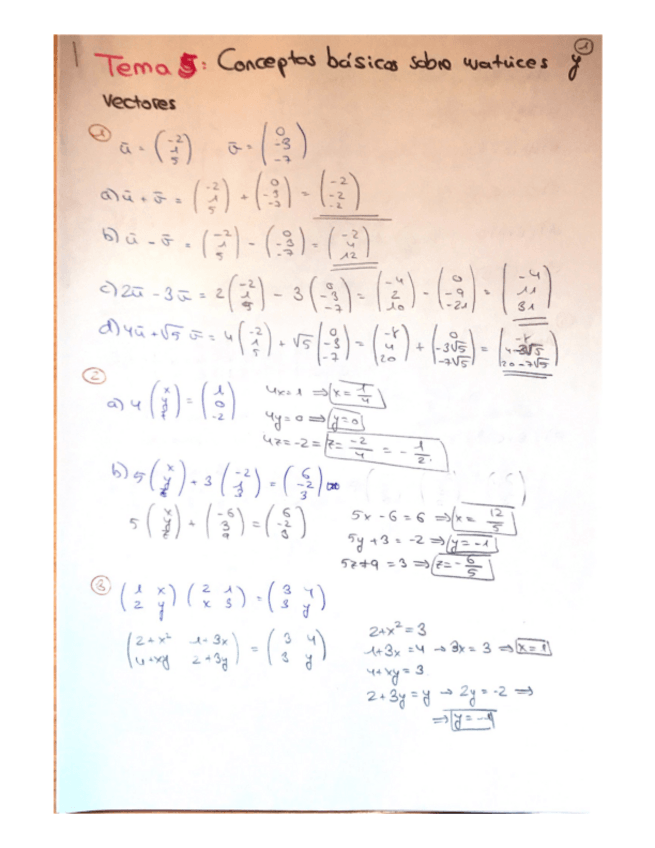 1
Tema 5: Conceptos básicos sobre matrices y
vectores
1 ū = (-2 1 5) v̄ = (0 -3 -7)
a) ū + v̄ = (-2 1 5) + (0 -3 -7) = (-2 -2 -2)
b) ū - v̄ = (-2 1 5) - (0 -3 -7) = (-2 4 12)
c) 2ū - 3v̄ = 2 (-2 1 5) - 3 (0 -3 -7) = (-4 2 10) - (0 -9 -21) = (-4 11 31)
d) 4ū + √5 v̄ = 4 (-2 1 5) + √5 (0 -3 -7) = (-8 4 20) + (0 -3√5 -7√5) = (-8 4-3√5 20-7√5)
2
a) 4 (x y z) = (1 0 -2) 4x = 1 ⇒ x = 1/4
4y = 0 ⇒ y = 0
4z = -2 = z = -2/4 = - 1/2
b) 5 (x y z) + 3 (-2 1 3) = (6 -2 3)
5 (x y z) + (-6 3 9) = (6 -2 3) 5x - 6 = 6 ⇒ x = 12/5
5y + 3 = -2 ⇒ y = -1
5z + 9 = 3 ⇒ z = - 6/5
3 (1 x 2 y) (2 1 x 3) = (3 4 3 y)
(2+x² 1+3x 4+xy 2+3y) = (3 4 3 y) 2+x² = 3
1+3x = 4 → 3x = 3 ⇒ x = 1
4+xy = 3
2+3y = y → 2y = -2 ⇒
⇒ y = -1